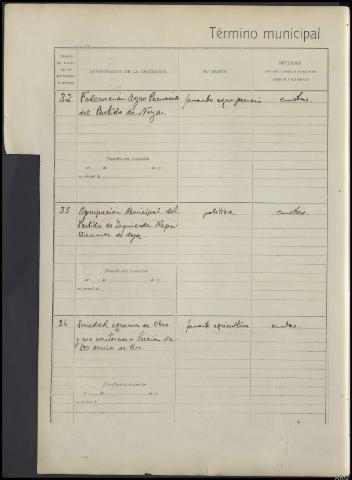 Término municipal
DENOMINACIÓN DE LA ASOCIACIÓN
SU OBJETO
RECURSOS
32 Federación Agro Pecuaria fomento agro-pecuario cuotas.
del Partido de Noya.
Disuelta esta Asociación
en de de 19
en virtud de
33 Agrupación Municipal del política cuotas.
Partido de Izquierda Repu-
blicana de Noya
Disuelta esta Asociación
en de de 19
en virtud de
34 Sociedad agraria de Obre fomento agricultura cuotas.
y sus contornos - Sección de
Sta María de Roo.
Disuelta esta Asociación
en de de 19
en virtud de